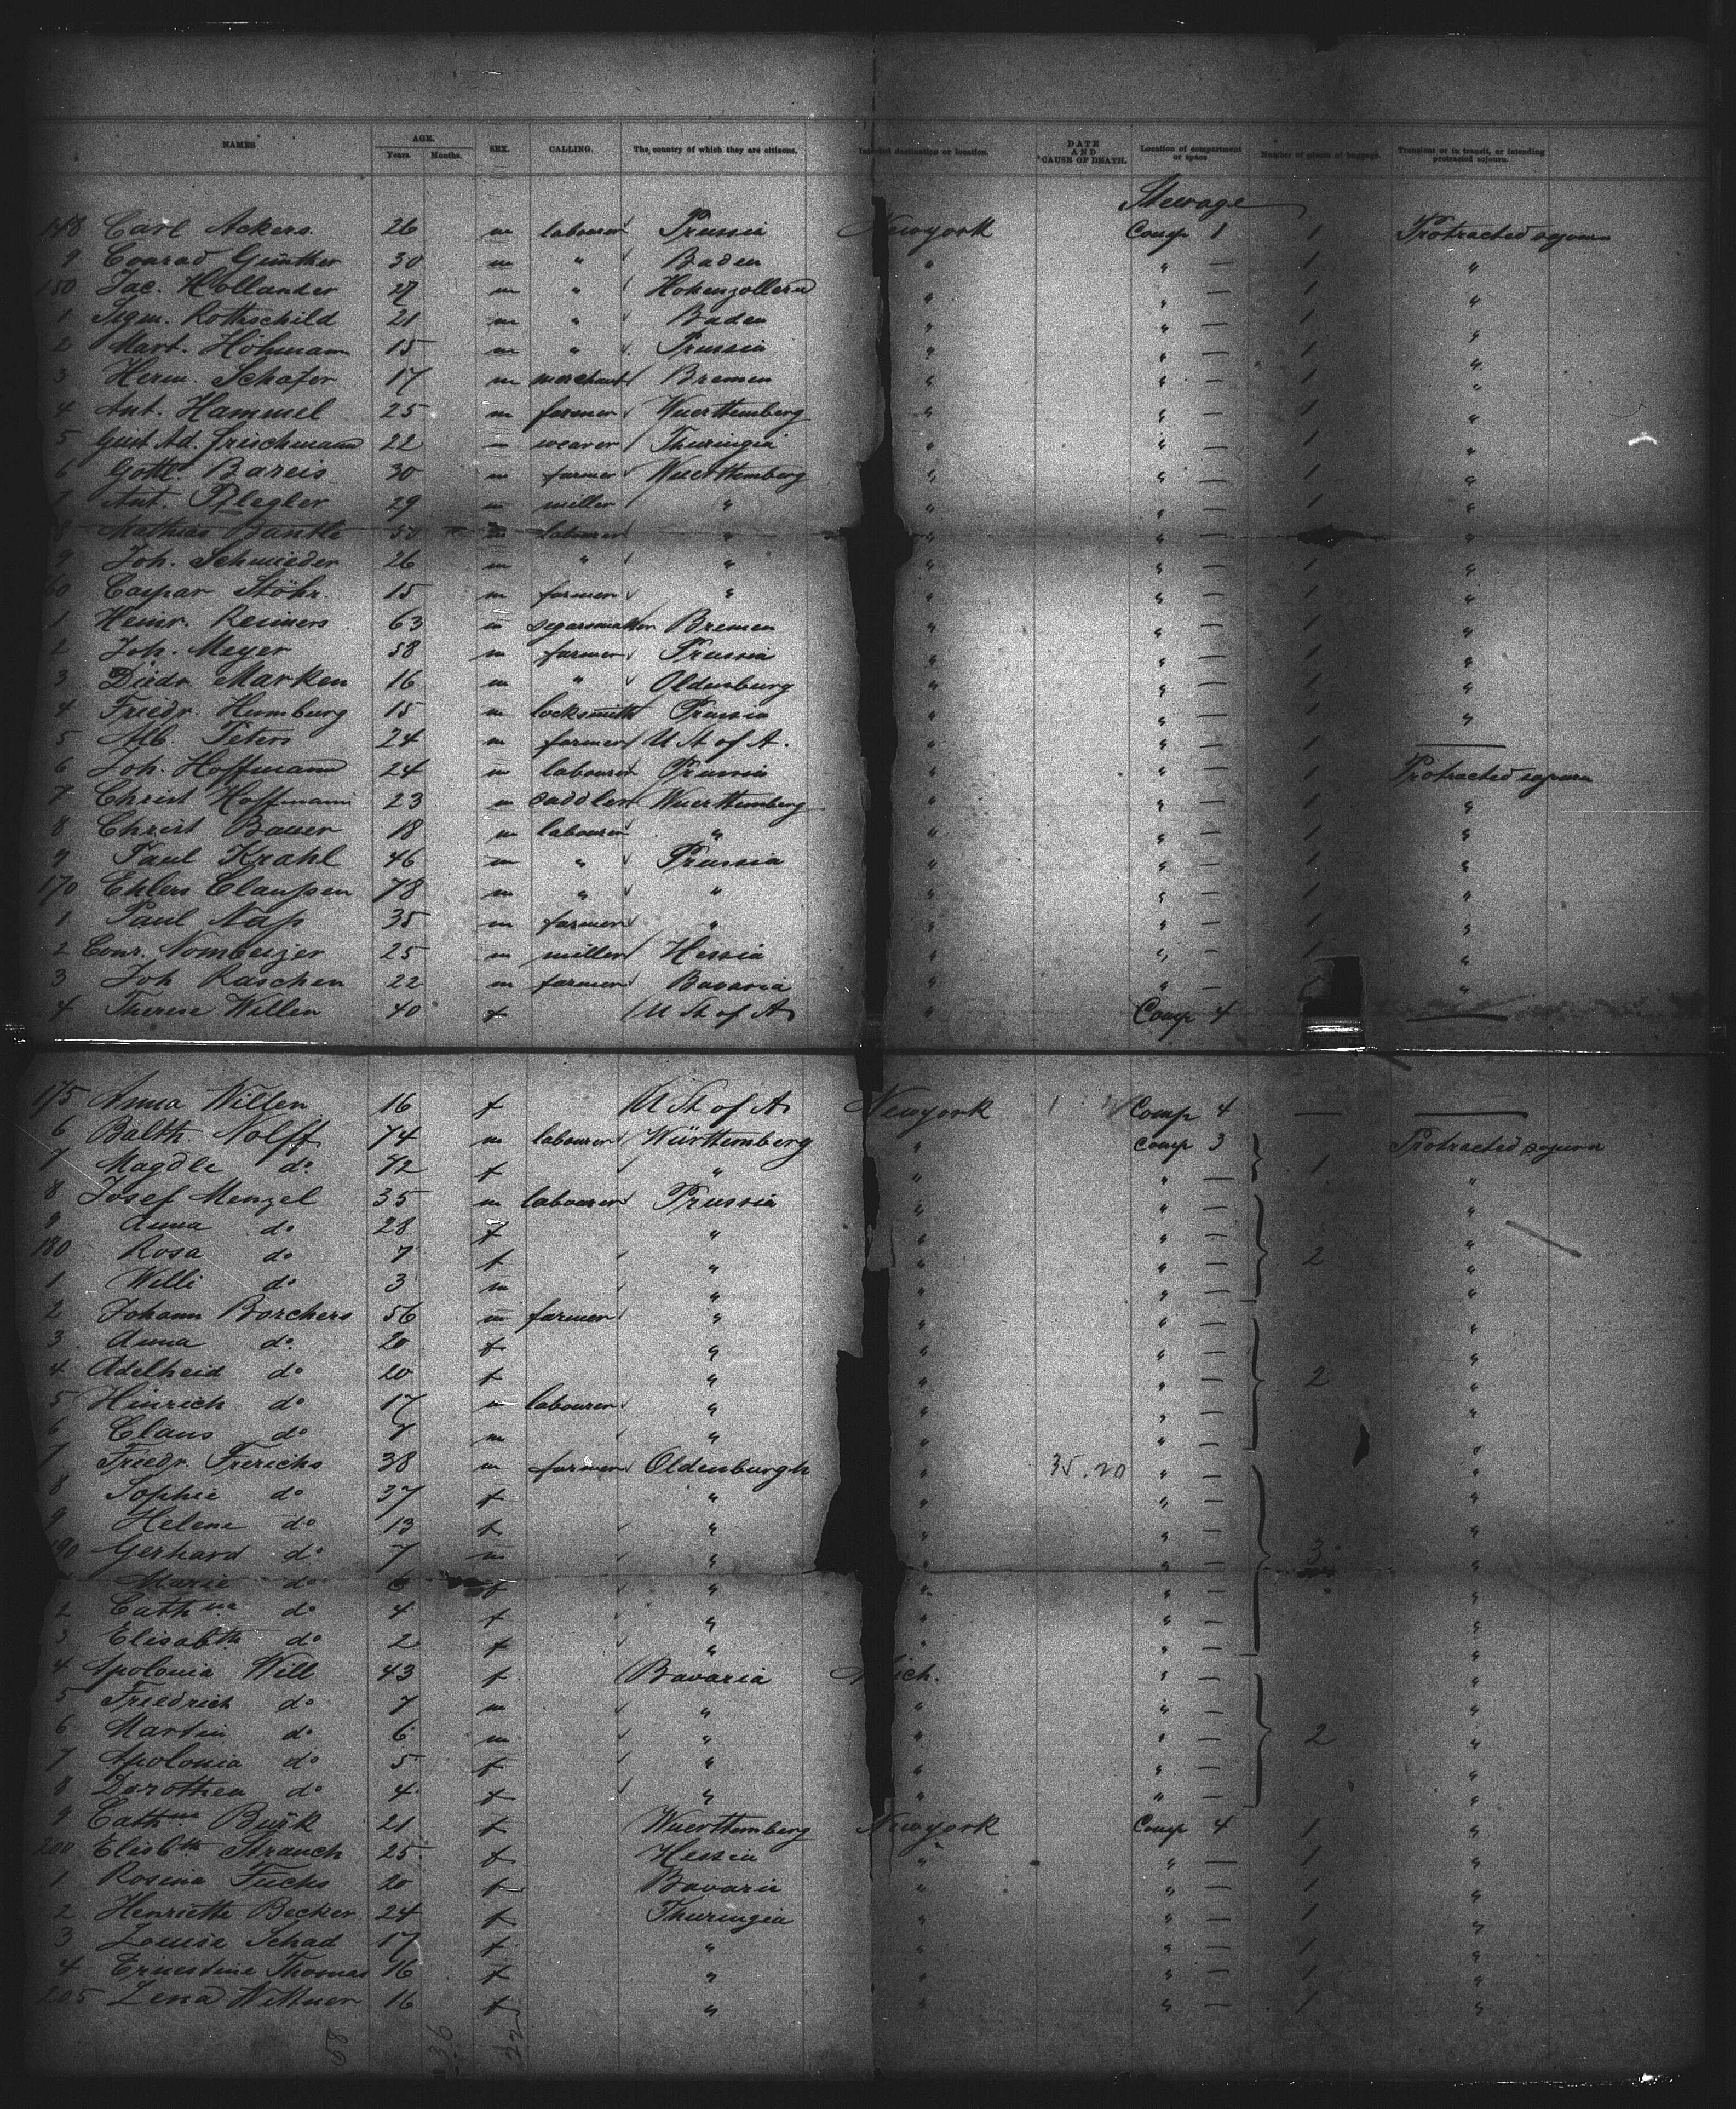 NAMES AGE. SEX. CALLING. The country of which they are citizens. Intended destination or location. DATE AND CAUSE OF DEATH. Location of compartment or space Number of pieces of baggage. Transient or in transit, or intending protracted sojourn.
Years. Months.
Steerage
148 Carl Ackers. 26 m labourer Prussia Newyork Comp 1 1 Protracted sojourn
9 Conrad Günther 30 m " Baden " " — 1 "
150 Jac. Hollander 27 m " Hohenzollern " " — 1 "
1 Sigm. Rothschild 21 m " Baden " " — 1 "
2 Mart. Höhmann 15 m " Prussia " " — 1 "
3 Herm. Schäfer 17 m merchant Bremen " " — 1 "
4 Ant. Hammel 25 m farmer Wuerttemberg " " — 1 "
5 Gust Ad. Frischmann 22 m weaver Thuringia " " — 1 "
6 Gottl. Bareis 30 m farmer Wuerttemberg " " — 1 "
7 Ant. Pflegler 29 m miller " " " — 1 "
8 Mathias Bantle 50 m labourer " " " — "
9 Joh. Schmieder 26 m " " " " — 1 "
60 Caspar Stöhr. 15 m farmer " " " — 1 "
1 Heinr. Reiners 63 m segarsmaker Bremen " " — 1 "
2 Joh. Meyer 58 m farmer Prussia " " — 1 "
3 Diedr. Marken 16 m " Oldenburg " " — 1 "
4 Friedr. Humburg 15 m locksmith Prussia " " — 1 "
5 Alb. Peters 24 m farmer U St of A. " " — 1 —
6 Joh. Hoffmann 24 m labourer Prussia " " — 1 Protracted sojourn
7 Christ Hoffmann 23 m saddler Wuerttemberg " " — 1 "
8 Christ Bauer 18 m labourer " " " — 1 "
9 Paul Krahl 46 m " Prussia " " — 1 "
170 Ehlers Claussen 78 m " " " " — 1 "
1 Paul Nass 35 m farmer " " " — 1 "
2 Conr. Nomberger 25 m miller Hessia " " — 1 "
3 Joh Raschen 22 m farmer Bavaria " " — "
4 Therese Willen 40 f U St of A " Comp 4 —
175 Anna Willen 16 f U St of A Newyork Comp 4 — —
6 Balth. Nolff 74 m labourer Württemberg " Comp 3 Protracted sojourn
7 Magdle do. 42 f " " " — 1 "
8 Josef Menzel 35 m labourer Prussia " " — "
9 Anna do 28 f " " " — "
180 Rosa do 7 f " " " — 2 "
1 Willi do 3 m " " " — "
2 Johann Borchers 56 m farmer " " " — "
3 Anna do. 20 f " " " — "
4 Adelheid do 20 f " " " — 2 "
5 Hinrich do 17 m labourer " " " — "
6 Claus do 7 m " " " — "
7 Friedr. Frerichs 38 m farmer Oldenburgh " 35.20 " — "
8 Sophie do 37 f " " " — "
9 Helene do 13 f " " " — "
190 Gerhard do. 7 m " " " — 3 "
Marie do 6 f " " " — "
2 Cathna do 4 f " " " — "
3 Elisabth do 2 f " " " — "
4 Apolonia Will 43 f Bavaria Mich. " — "
5 Friedrich do 7 m " " " — "
6 Martin do 6 m " " " — 2 "
7 Apolonia do 5 f " " " — "
8 Dorothea do 4 f " " " — "
9 Cathna Bürk 21 f Wuerttemberg Newyork Comp 4 1 "
200 Elisbth Strauch 25 f Hessia " " — 1 "
1 Rosina Fuchs 20 f Bavaria " " — 1 "
2 Henriette Becker 24 f Thuringia " " — 1 "
3 Louise Schad 17 f " " " — 1 "
4 Ernestine Thomas 16 f " " " — 1 "
205 Lena Wittmer 16 f " " " — 1 "
58 36 22